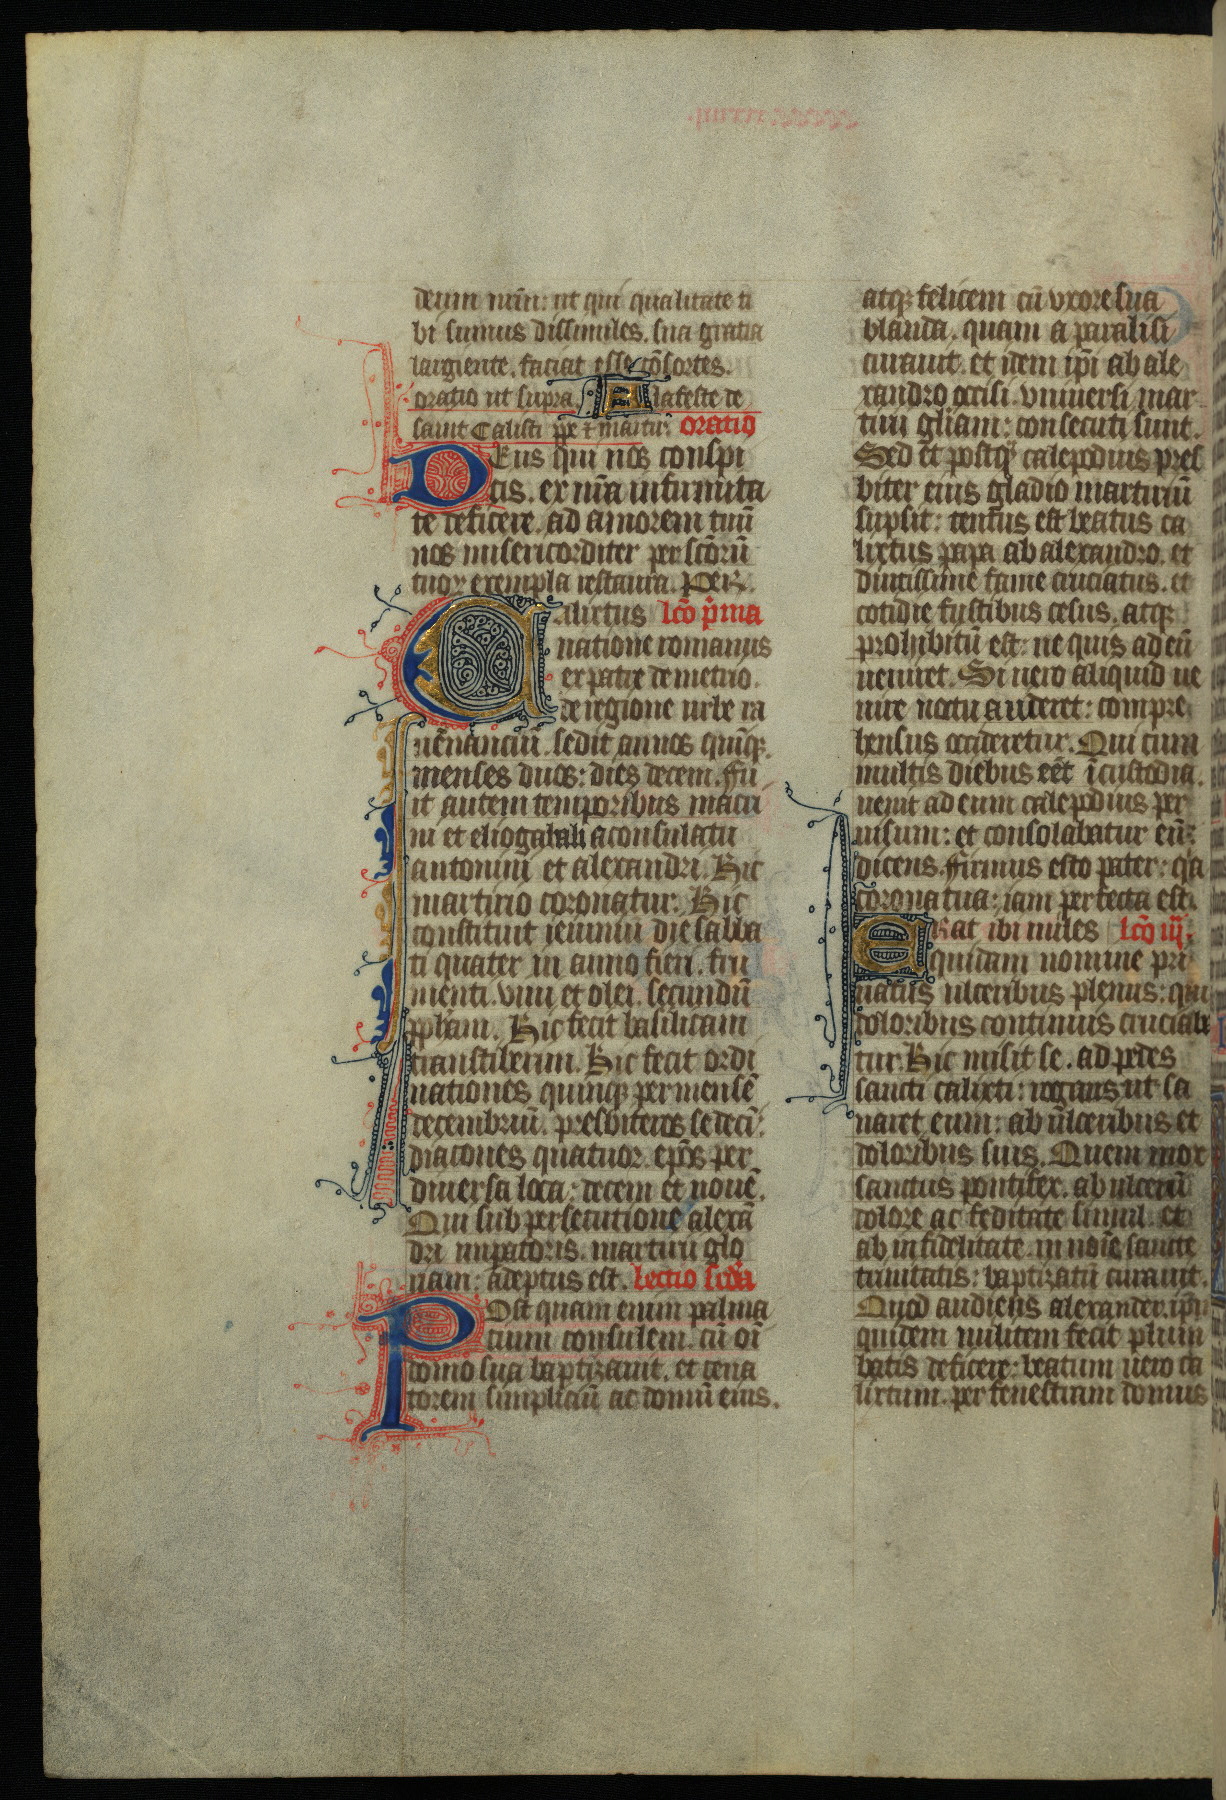 deum nrm̃: ut qui qualitate ti
bi sumus dissimiles. sua gratia
largiente. faciat esse cõsortes.
oratio ut supra. In lafeste de
saint Calisti pp̃e ⁊ martir. oratio
DEus qui nos conspi
cis. ex nr̃a infirmita
te deficere. ad amorem tuũ
nos misericorditer per scõrũ
tuoꝝ exempla restaura. Per.
Calixtus lcõ p̃ma
natione romanus
ex patre demetrio.
de regione urbe ra
uẽnanciũ. sedit annos quinqꝫ.
menses duos: dies decem. Fu
it autem temporibus macri
ni et eliogabali a consulatu
antonini et alexandri. Hic
martirio coronatur. Hic
constituit ieiuniũ die sabba
ti quater in anno fieri. fru
menti. vini et olei. secundũ
pp̃ham. Hic fecit basilicam
transtiberim. Hic fecit ordi
nationes quinqꝫ per mensẽ
decembriũ. presbiteros sedeci͂.
diacones quatuor. ep̃os per
diuersa loca: decem et nouẽ.
Qui sub persecutione alexã
dri inpatoris. martirii glo
riam: adeptus est. Lectio scd̃a
POst quam enim palma
cium consulem. cũ oĩ
domo sua baptizauit. et cena
torem simpliciũ ac domũ eius.
atqꝫ felicem cũ vxore sua
blanda. quam a paralisi
curauit. et idem ip̃i ab ale
xandro occisi. vniuersi mar
tirii gl̃iam: consecuti sunt.
Sed et postq̃ calepodius pres
biter eius gladio martiriũ
sũpsit: tentus est beatus ca
lixtus papa ab alexandro. et
diutissime fame cruciatus. et
cotidie fustibus cesus. atqꝫ
prohibitũ est: ne quis ad eũ
ueniret. Si uero aliquid ue
nire noctu auderet: compre
hensus occideretur. Qui cum
multis diebus eẽt ĩ custodia.
uenit ad eum calepodius per
uisum: et consolabatur eũ:
dicens. Firmus esto pater: q̃a
corona tua: iam perfecta est.
ERat ibi miles lcõ iij.
quidam nomine pri
uatus ulceribus plenus: qui
doloribus continuis cruciabr̃
tur. Hic misit se. ad pedes
sancti calixti: rogans ut sa
naret eum: ab ulceribus et
doloribus suis. Quem mox
sanctus pontifex. ab ulcerũ
dolore ac feditate simul et
ab infidelitate. in noĩe sancte
trinitatis: baptizatũ curauit.
Quod audiens alexander. ip̃m
quidem militem fecit plum
batis deficere: beatum uero ca
lixtum. per fenestram domus